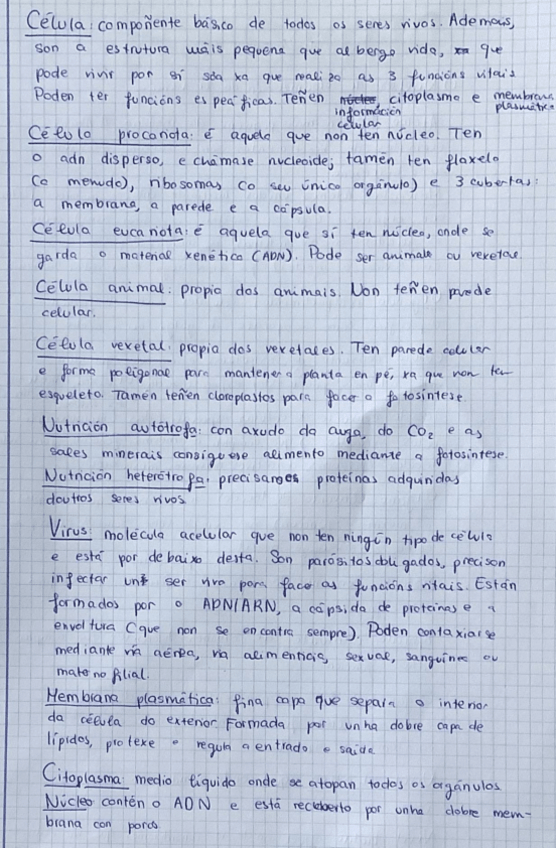 Célula: compoñente básico de todos os seres vivos. Ademais,
son a estrutura máis pequena que alberga vida, xa que
pode vivir por si soa xa que realiza as 3 funcións vitais
Poden ter funcións específicas. Teñen información celular, citoplasma e membrana plasmática
Célula procariota: é aquela que non ten núcleo. Ten
o adn disperso, e chámase nucleoide; tamén ten flaxelo
(a menudo), ribosomas (o seu único orgánulo) e 3 cubertas:
a membrana, a parede e a cápsula.
Célula eucariota: é aquela que sí ten núcleo, onde se
garda o material xenético (ADN). Pode ser animal ou vexetal.
Célula animal: propia dos animais. Non teñen parede
celular.
Célula vexetal: propia dos vexetales. Ten parede celular
e forma poligonal para manter a planta en pé, xa que non ten
esqueleto. Tamén teñen cloroplastos para facer a fotosíntese.
Nutrición autótrofa: con axuda da auga, do CO2 e as
sales minerais consíguese alimento mediante a fotosíntese.
Nutrición heterótrofa: precisamos proteínas adquiridas
doutros seres vivos
Virus: molécula acelular que non ten ningún tipo de célula
e está por debaixo desta. Son parásitos obligados, precisan
infectar un ser vivo para facer as funcións vitais. Están
formados por o ADN/ARN, a cápsida de proteínas e a
envoltura (que non se encontra sempre). Poden contaxiarse
mediante vía aérea, vía alimenticia, sexual, sanguínea ou
materno filial.
Membrana plasmática: fina capa que separa o interior
da célula do exterior. Formada por unha dobre capa de
lípidos, protexe e regula a entrada e saída
Citoplasma: medio líquido onde se atopan todos os orgánulos
Núcleo contén o ADN e está recuberto por unha dobre mem-
brana con poros